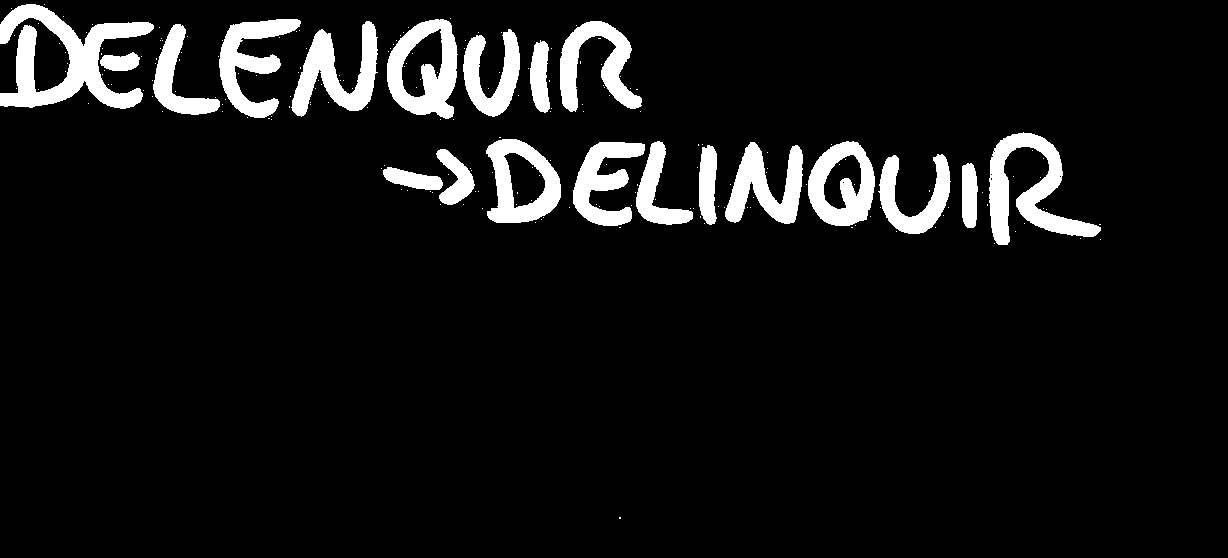 DELENQUIR
→DELINQUIR